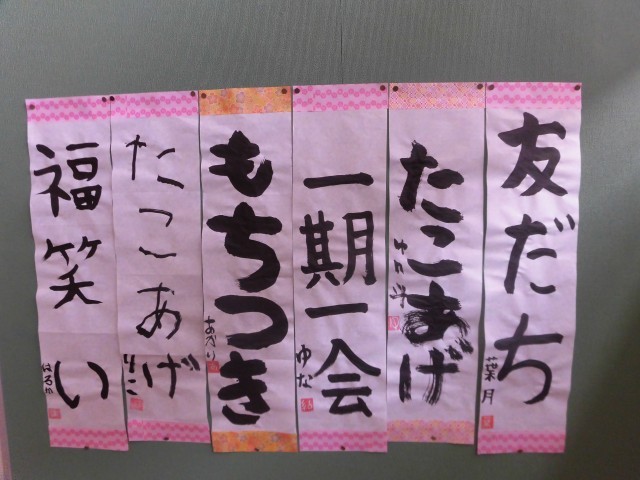 友だち
葉月
たこあげ
一期一会
ゆな
もちつき
あかり
たこあげ
りこ
福笑い
はるか